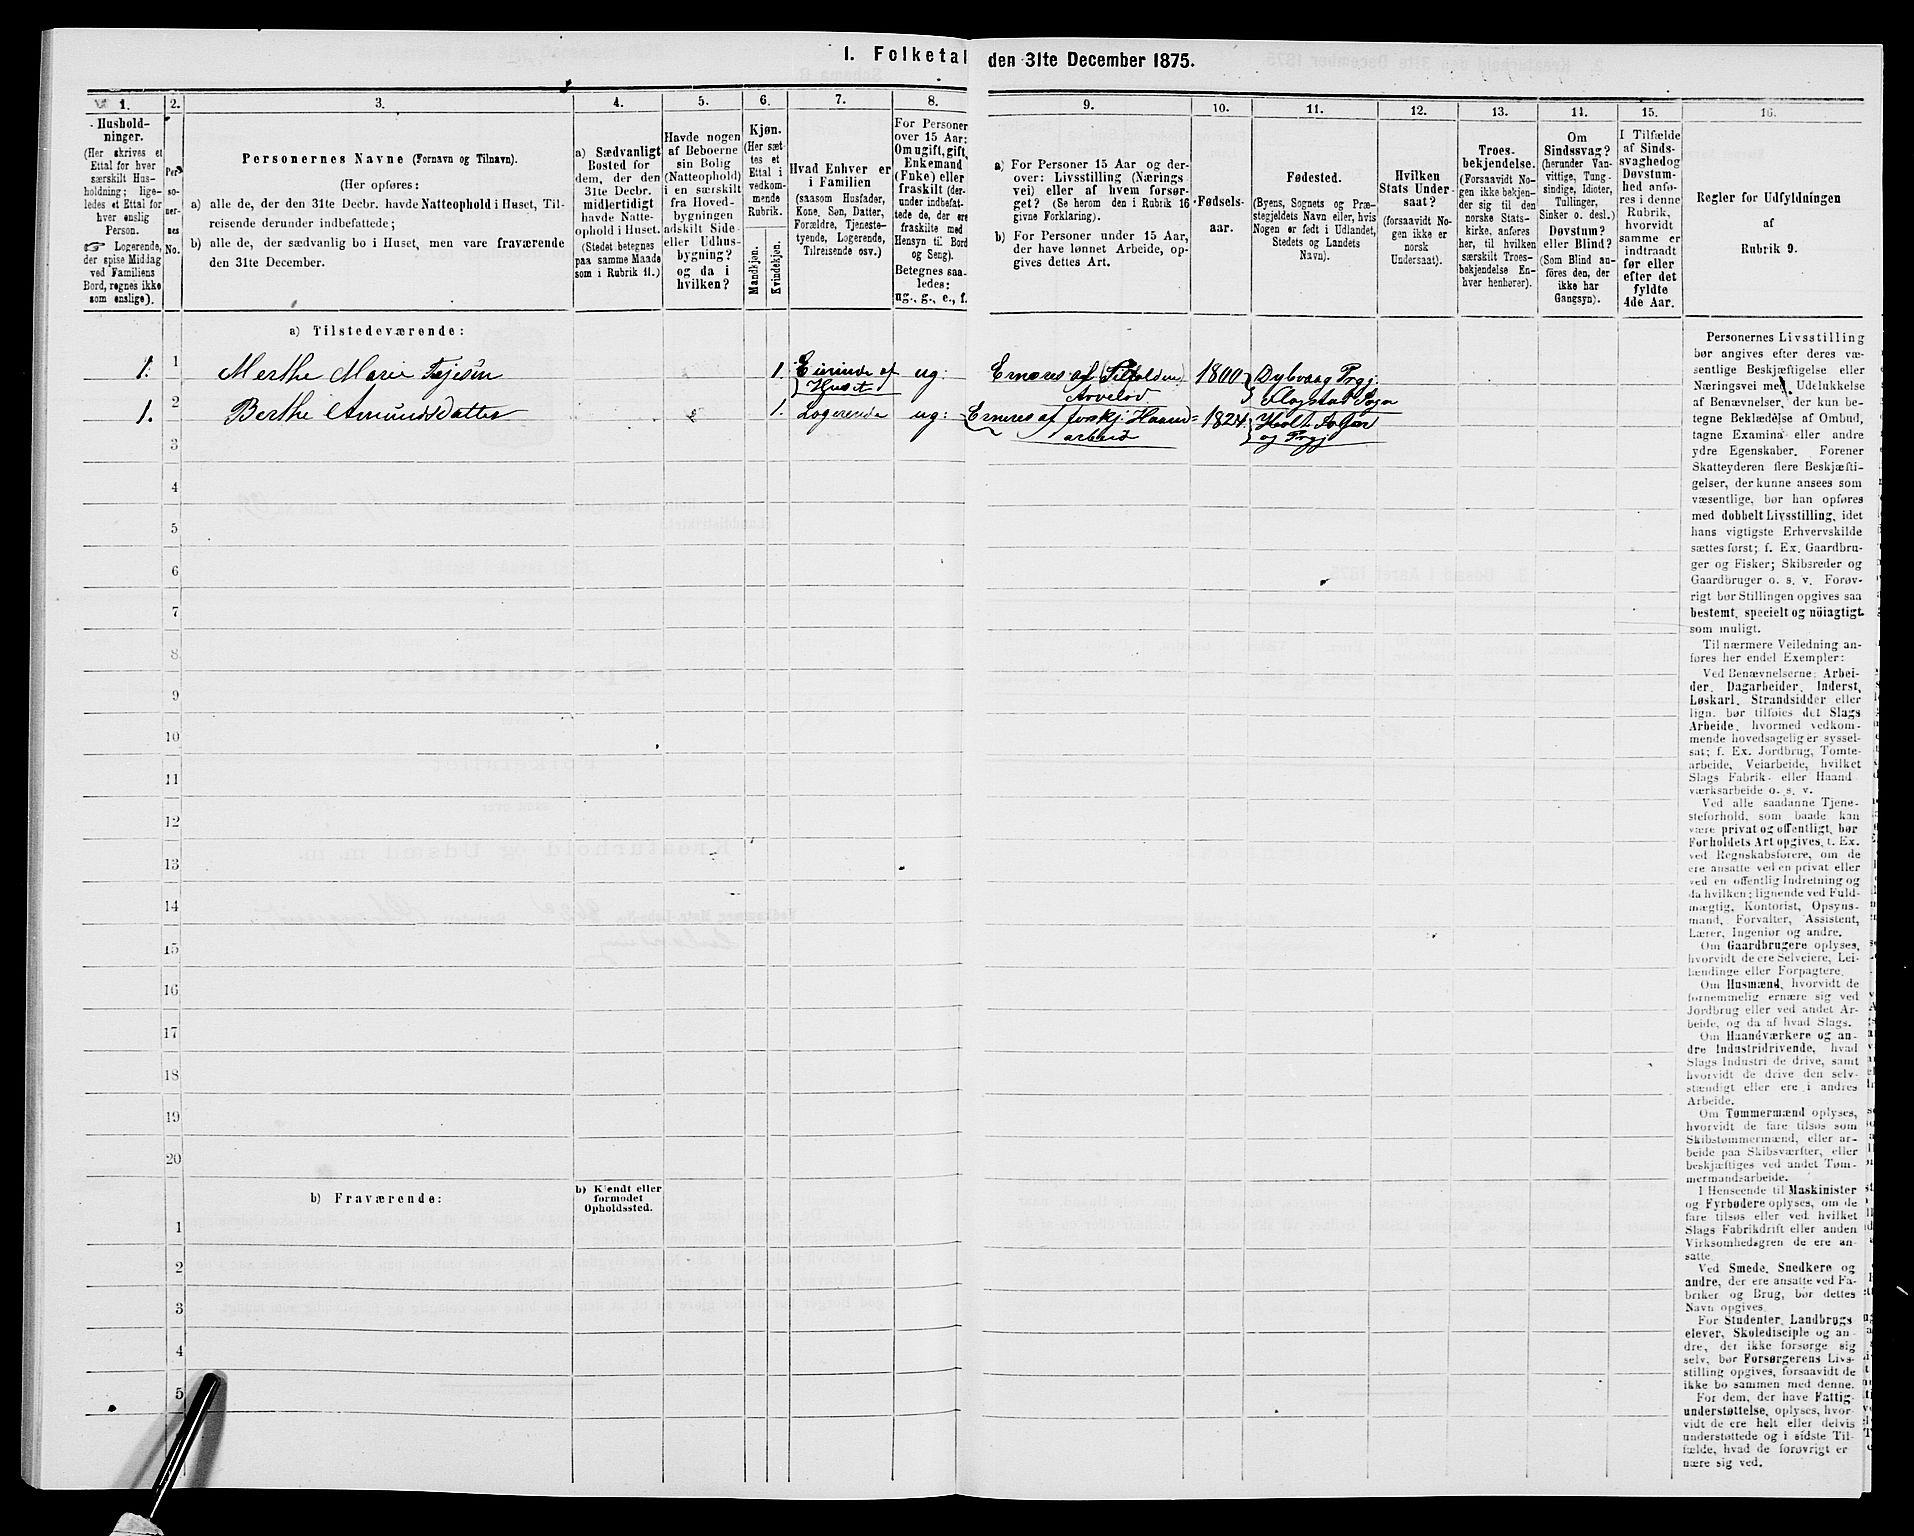 1. Folketal den 31te December 1875.
1. 2. 3. 4. 5. 6. 7. 8. 9. 10. 11. 12. 13. 14. 15. 16.
Hushold-
ninger.
(Her skrives et
Ettal for hver
særskilt Hus-
holdning; lige-
ledes et Ettal for
hver enslig
Person.
☞ Logerende,
der spise Middag
ved Familiens
Bord, regnes ikke
som enslige).
Per-
so-
ner-
nes
No.
Personernes Navne (Fornavn og Tilnavn).
(Her opføres:
a) alle de, der den 31te Decbr. havde Natteophold i Huset, Til-
reisende derunder indbefattede;
b) alle de, der sædvanlig bo i Huset, men vare fraværende
den 31te December.
a) Sædvanligt
Bosted for
dem, der den
31te Decbr.
midlertidigt
havde Natte-
ophold i Huset.
(Stedet betegnes
paa samme Maade
som i Rubrik 11.)
Havde nogen
af Beboerne
sin Bolig
(Natteophold)
i en særskilt
fra Hoved-
bygningen
adskilt Side-
eller Udhus-
bygning?
og da i
hvilken?
Kjøn.
(Her sæt-
tes et
Ettal i
vedkom-
mende
Rubrik.
Mandkjøn.
Kvindekjøn.
Hvad Enhver er
i Familien
(saasom Husfader,
Kone, Søn, Datter,
Forældre, Tjeneste-
tyende, Logerende,
Tilreisende osv.)
For Personer
over 15 Aar:
Om ugift, gift,
Enkemand
(Enke) eller
fraskilt (der-
under indbefat-
tede de, der ere
fraskilte med
Hensyn til Bord
og Seng).
Betegnes saa-
ledes:
ug., g., e., f.
a) For Personer 15 Aar og der-
over: Livsstilling (Nærings-
vei) eller af hvem forsør-
get? (Se herom den i Rubrik 16
givne Forklaring).
b) For Personer under 15 Aar,
der have lønnet Arbeide, op-
gives dettes Art.
Fødsels-
aar.
Fødested.
(Byens, Sognets og Præ-
stegjeldets Navn eller, hvis
Nogen er født i Udlandet,
Stedets og Landets
Navn).
Hvilken
Stats Under-
saat?
(forsaavidt No-
gen ikke er
norsk
Undersaat).
Troes-
bekjendelse.
(Forsaavidt No-
gen ikke bekjen-
der sig til den
norske Stats-
kirke, anføres
her, til hvilken
særskilt Troes-
bekjendelse En-
hver henhører).
Om
Sindssvag?
(herunder Van-
vittige, Tung-
sindige, Idioter,
Tullinger,
Sinker o. desl.)
Døvstum?
eller Blind?
(Som Blind an-
føres den, der
ikke har
Gangsyn).
I Tilfælde
af Sinds-
svaghed og
Døvstum-
hed anfø-
res i denne
Rubrik,
hvorvidt
samme er
indtraadt
før eller
efter det
fyldte
4de Aar.
Regler for Udfyldningen
af
Rubrik 9.
a) Tilstedeværende:
1. 1 Merthe Marie Tejesùn 1. Eierinde af Huset ug: Ernæres af Tilfalden Arvelod. 1800 Dybvaag Prgj: Flagstad Sogn
1. 2 Berthe Amundsdatter 1. Logerende ug: Ernæres af forskj. Haand= arbeid 1824. Holt Sogn og Prgj
3
4
5
6
7
8
9
10
11
12
13
14
15
16
17
18
19
20
b) Fraværende:
b) Kjendt eller
formodet
Opholdssted.
1
2
3
4
5
Personernes Livsstilling
bør angives efter deres væ-
sentlige Beskjæftigelse eller
Næringsvei med Udelukkelse
af Benævnelser, der kun be-
tegne Beklædelse af Ombud,
tagne Examina eller andre
ydre Egenskaber. Forener
Skatteyderen flere Beskjæfti-
gelser, der kunne ansees som
væsentlige, bør han opføres
med dobbelt Livsstilling, idet
hans vigtigste Erhvervskilde
sættes først; f. Ex. Gaardbru-
ger og Fisker; Skibsreder og
Gaardbruger o. s. v. Forøv-
rigt bør Stillingen opgives saa
bestemt, specielt og nøiagtigt
som muligt.
Til nærmere Veiledning an-
føres her endel Exempler:
Ved Benævnelserne: Arbei-
der, Dagarbeider, Inderst,
Løskarl, Strandsidder eller
lign. bør tilføies det Slags
Arbeide, hvormed vedkom-
mende hovedsagelig er syssel-
sat; f. Ex. Jordbrug, Tomte-
arbeide, Veiarbeide, hvilket
Slags Fabrik- eller Haand-
værksarbeide o. s. v.
Ved alle saadanne Tjene-
steforhold, som baade kan
være privat og offentligt, bør
Forholdets Art opgives, f. Ex.
ved Regnskabsførere, om de
ere ansatte ved en privat eller
ved en offentlig Indretning og
da hvilken; lignende ved Fuld-
mægtig, Kontorist, Opsyns-
mand, Forvalter, Assistent,
Lærer, Ingeniør og andre.
Om Gaardbrugere oplyses,
hvorvidt de ere Selveiere, Lei-
lændinge eller Forpagtere.
Om Husmænd, hvorvidt de
fornemmelig ernære sig ved
Jordbrug eller ved andet Ar-
beide, og da af hvad Slags.
Om Haandværkere og an-
dre Industridrivende, hvad
Slags Industri de drive, samt
hvorvidt de drive den selv-
stændigt eller ere i andres
Arbeide.
Om Tømmermænd oplyses,
hvorvidt de fare tilsøs som
Skibstømmermænd, eller ar-
beide paa Skibsværfter, eller
beskjæftiges ved andet Tøm-
mermandsarbeide.
I Henseende til Maskinister
og Fyrbødere oplyses, om de
fare tilsøs eller ved hvilket
Slags Fabrikdrift eller anden
Virksomhedsgren de ere an-
satte.
Ved Smede, Snedkere og
andre, der ere ansatte ved Fa-
briker og Brug, bør dettes
Navn opgives.
For Studenter, Landbrugs-
elever, Skoledisciple og an-
dre, der ikke forsørge sig
selv, bør Forsørgerens Livs-
stilling opgives, forsaavidt de
ikke bo sammen med denne.
For dem, der have Fattig-
understøttelse, oplyses, hvor-
vidt de ere helt eller delvis
understøttede og i sidste Til-
fælde, hvad de forøvrigt er-
nære sig ved.